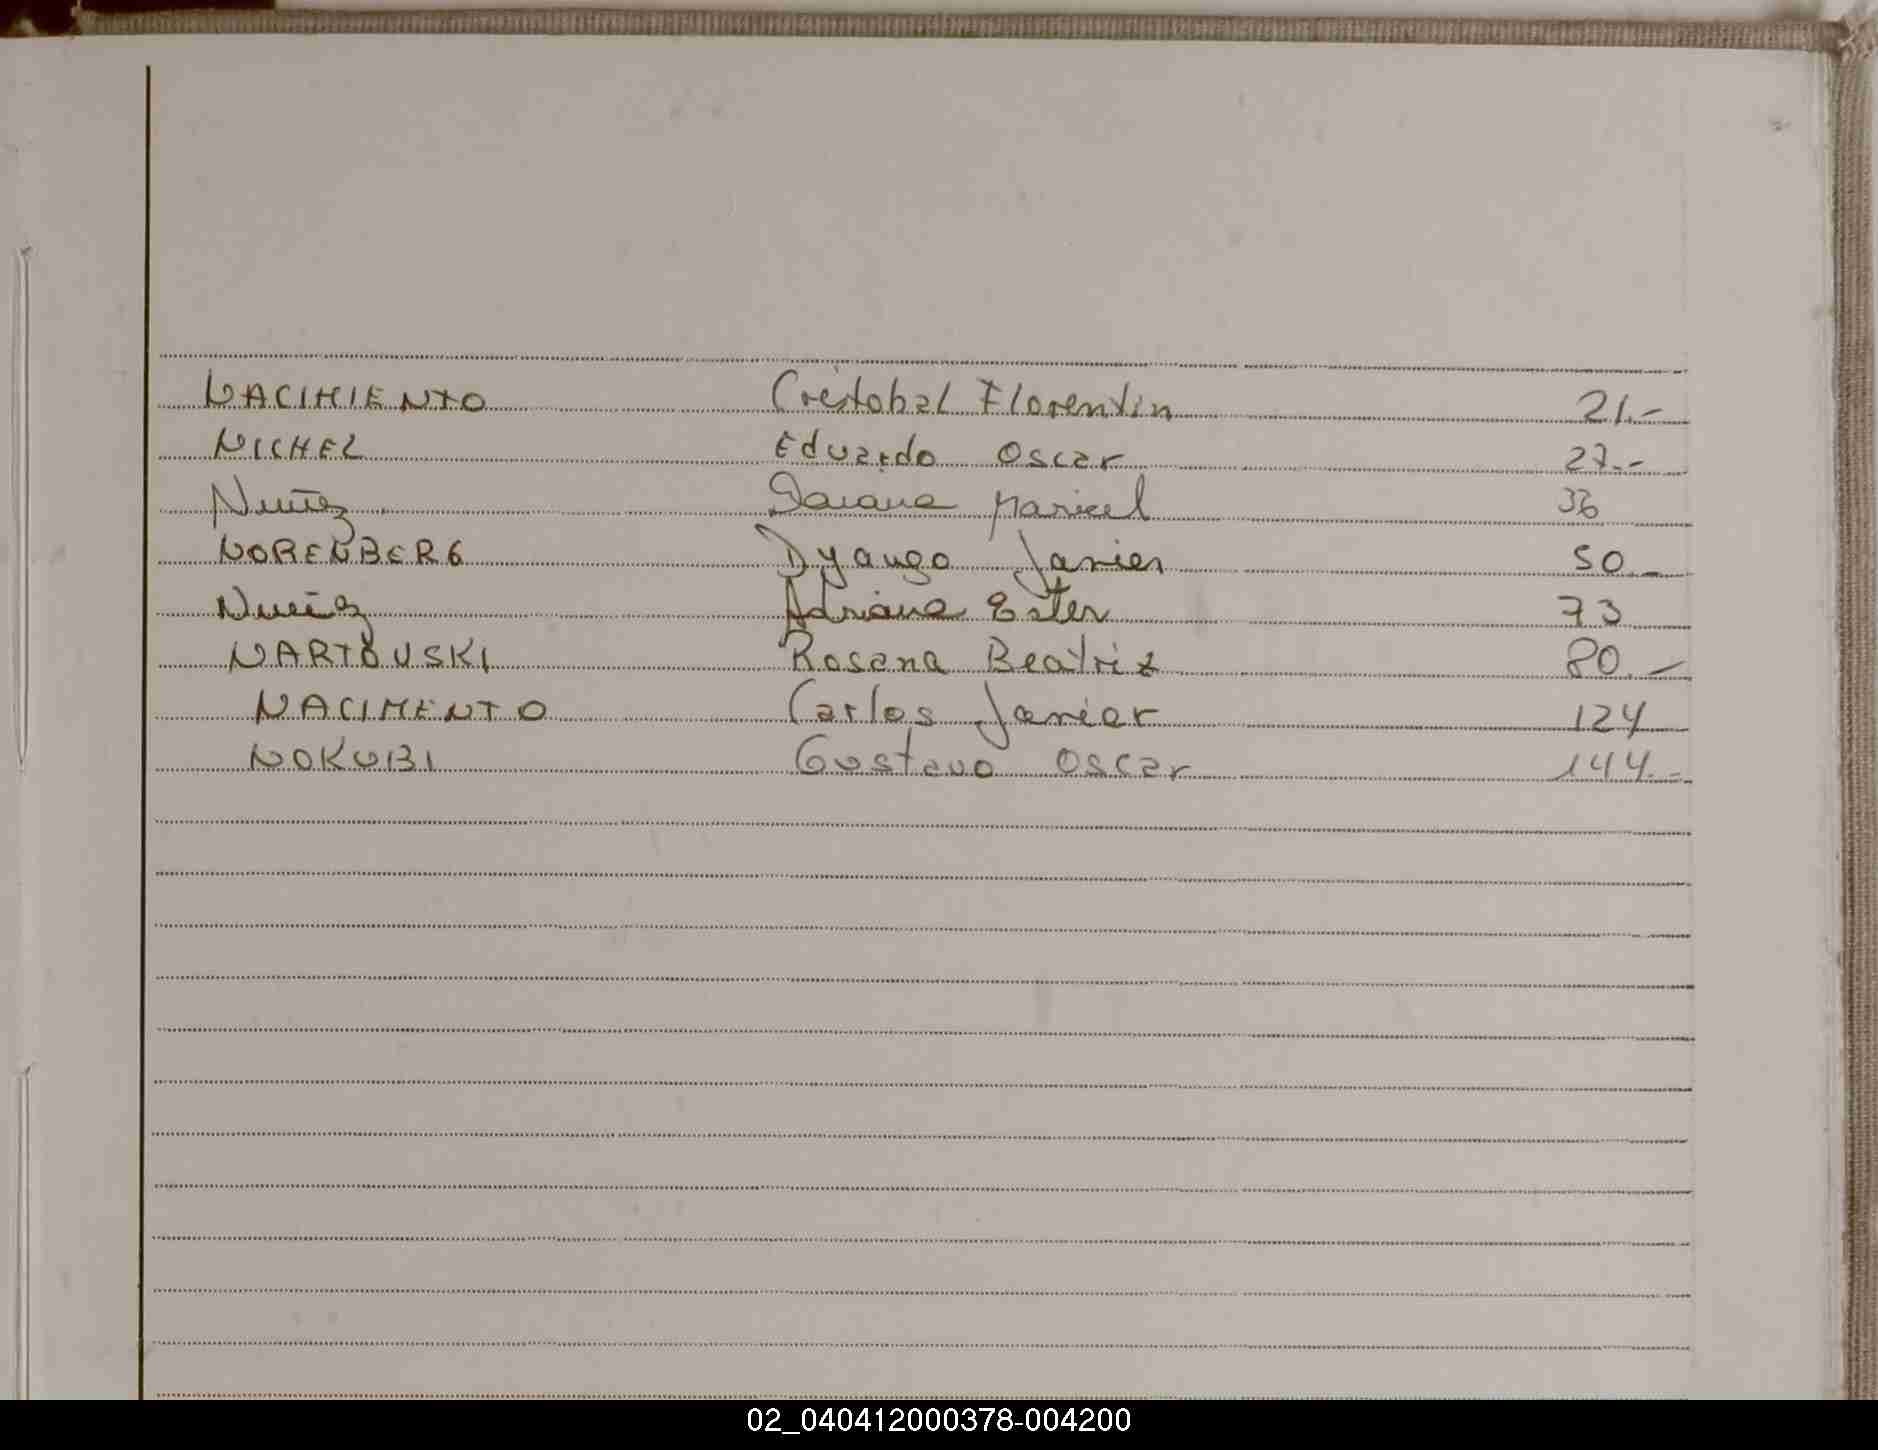 NACIMIENTO Cristobal Florentin 21.-
NICHEL Eduardo Oscar 27.-
Nuñez Daiana Maricel 36
NORENBERG Dyango Javier 50.-
Nuñez Adriana Ester 73
NARTOUSKI Rosana Beatriz 80.-
NACIMENTO Carlos Javier 124
NOKUBI Gustavo Oscar 144.-
02_040412000378-004200